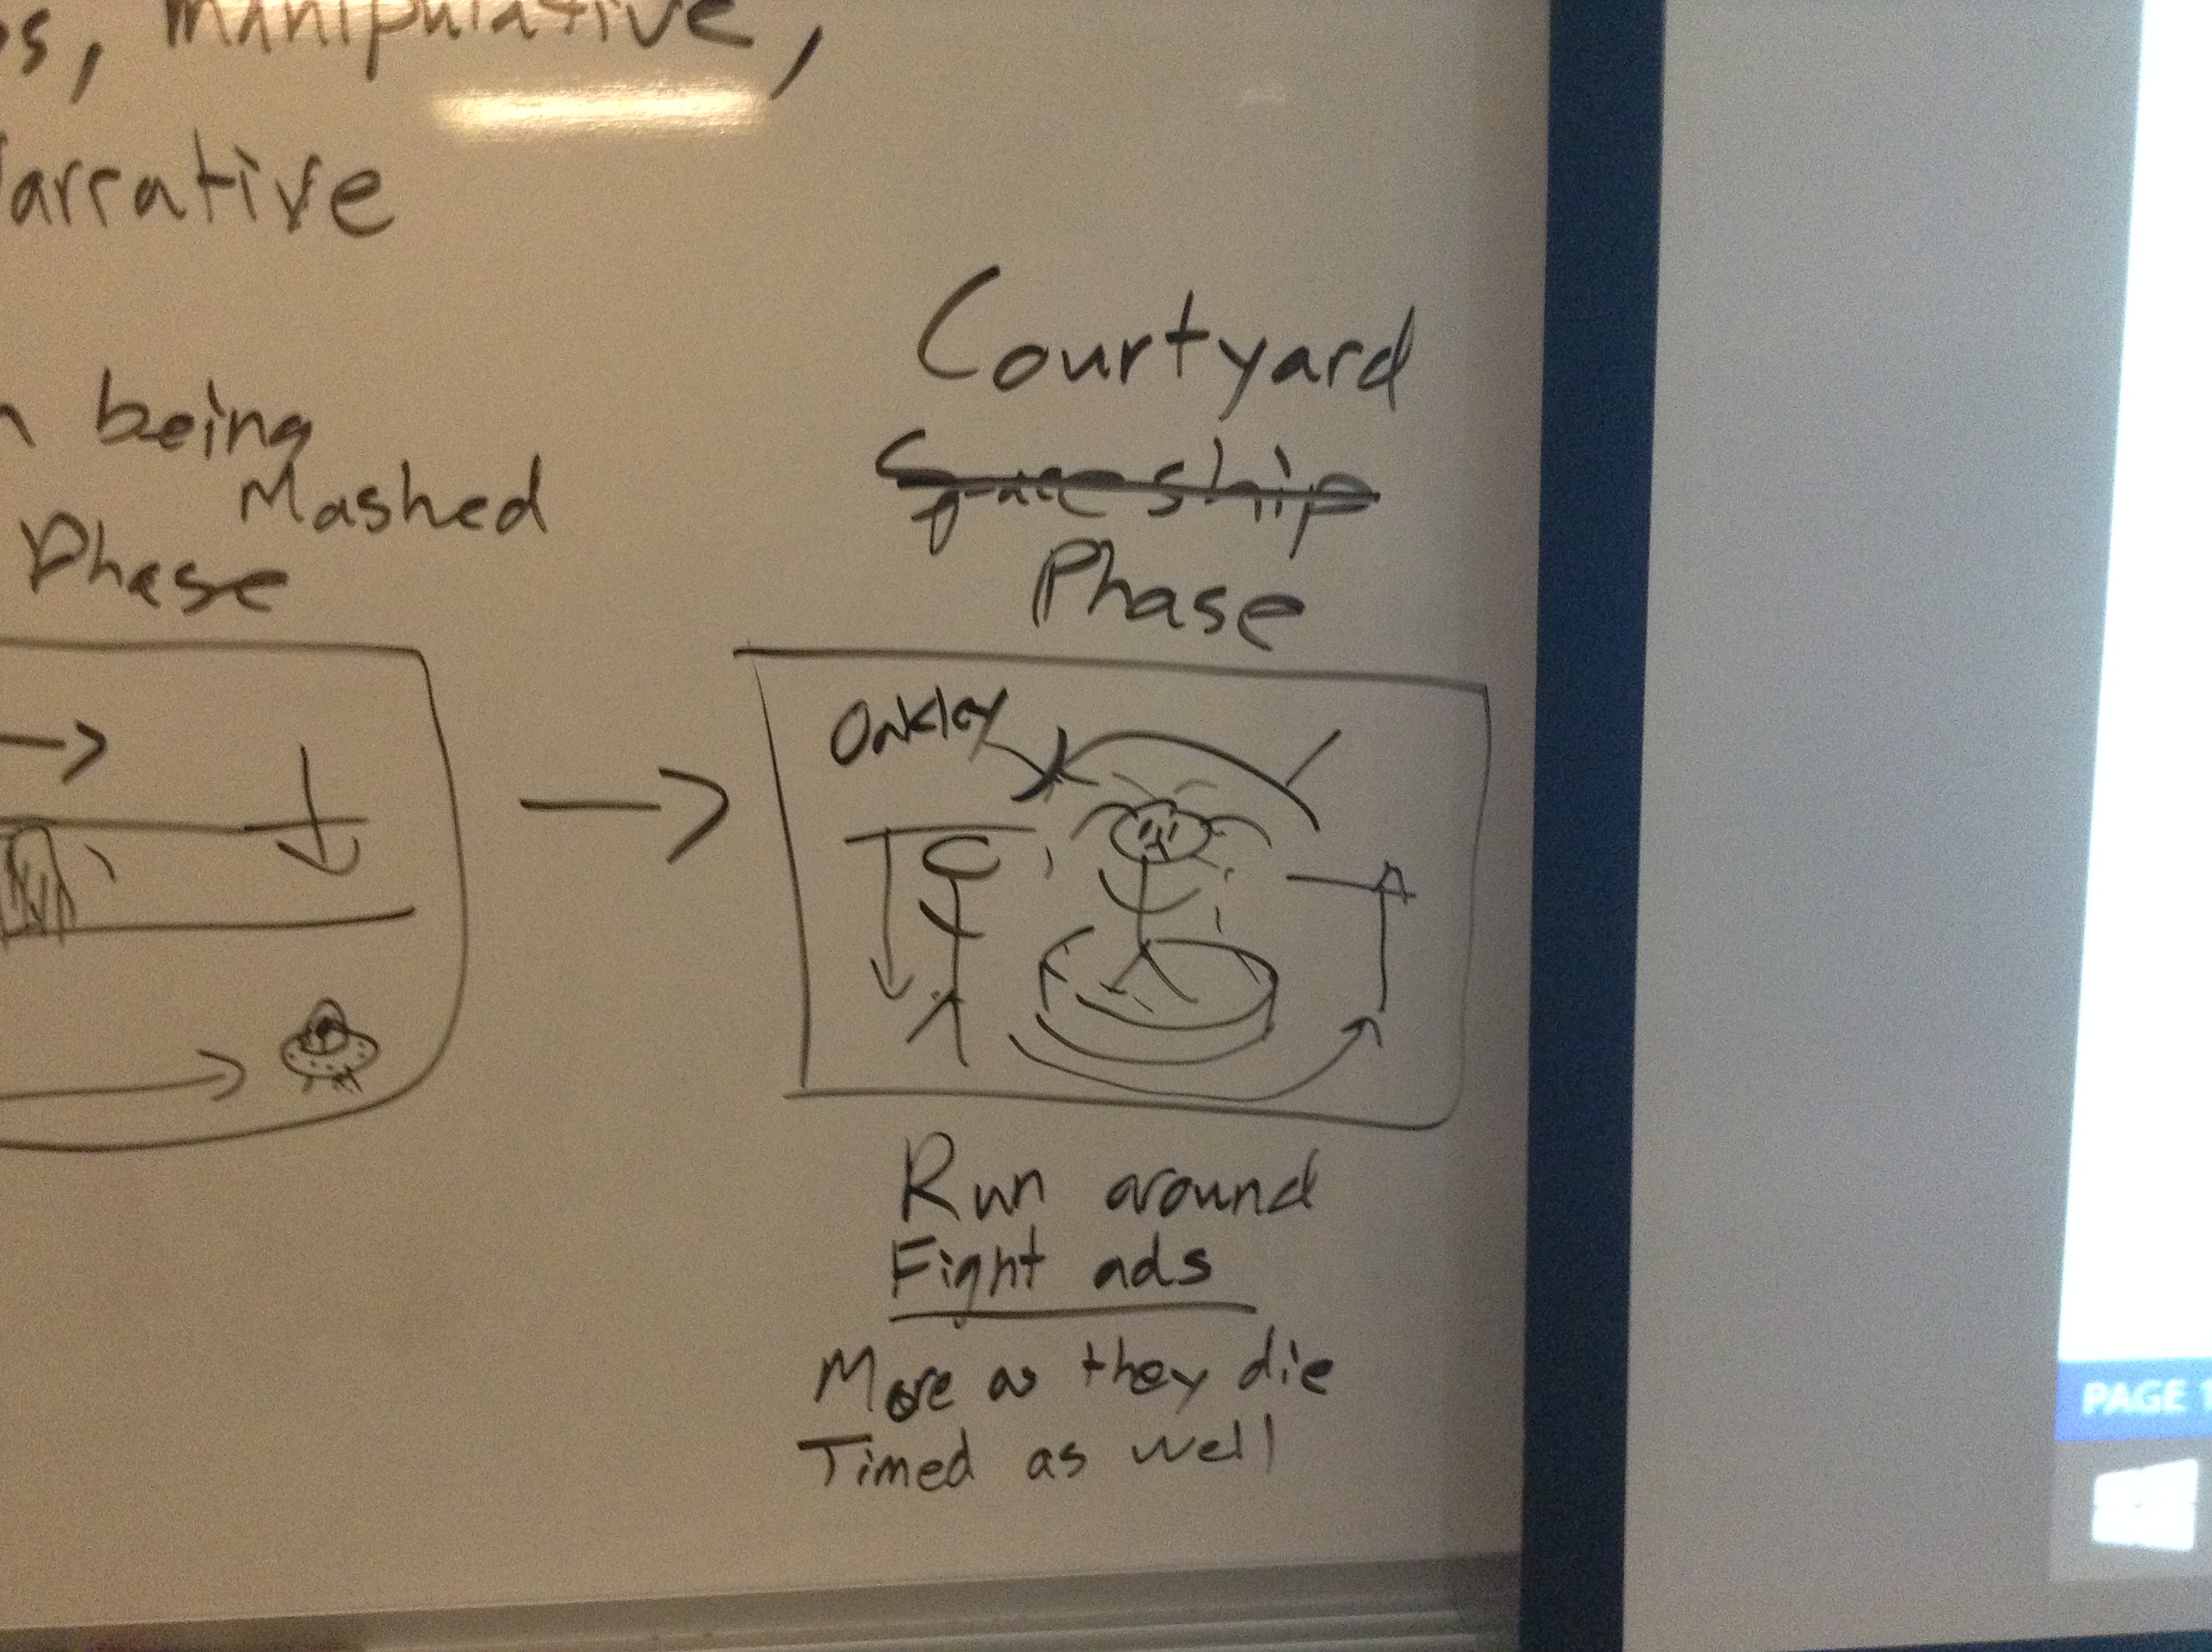 s, manipulative,
arrative
n being
Mashed
Phase
Courtyard
Spaceship
Phase
Oakley
Run around
Fight ads
More as they die
Timed as well
PAGE 1